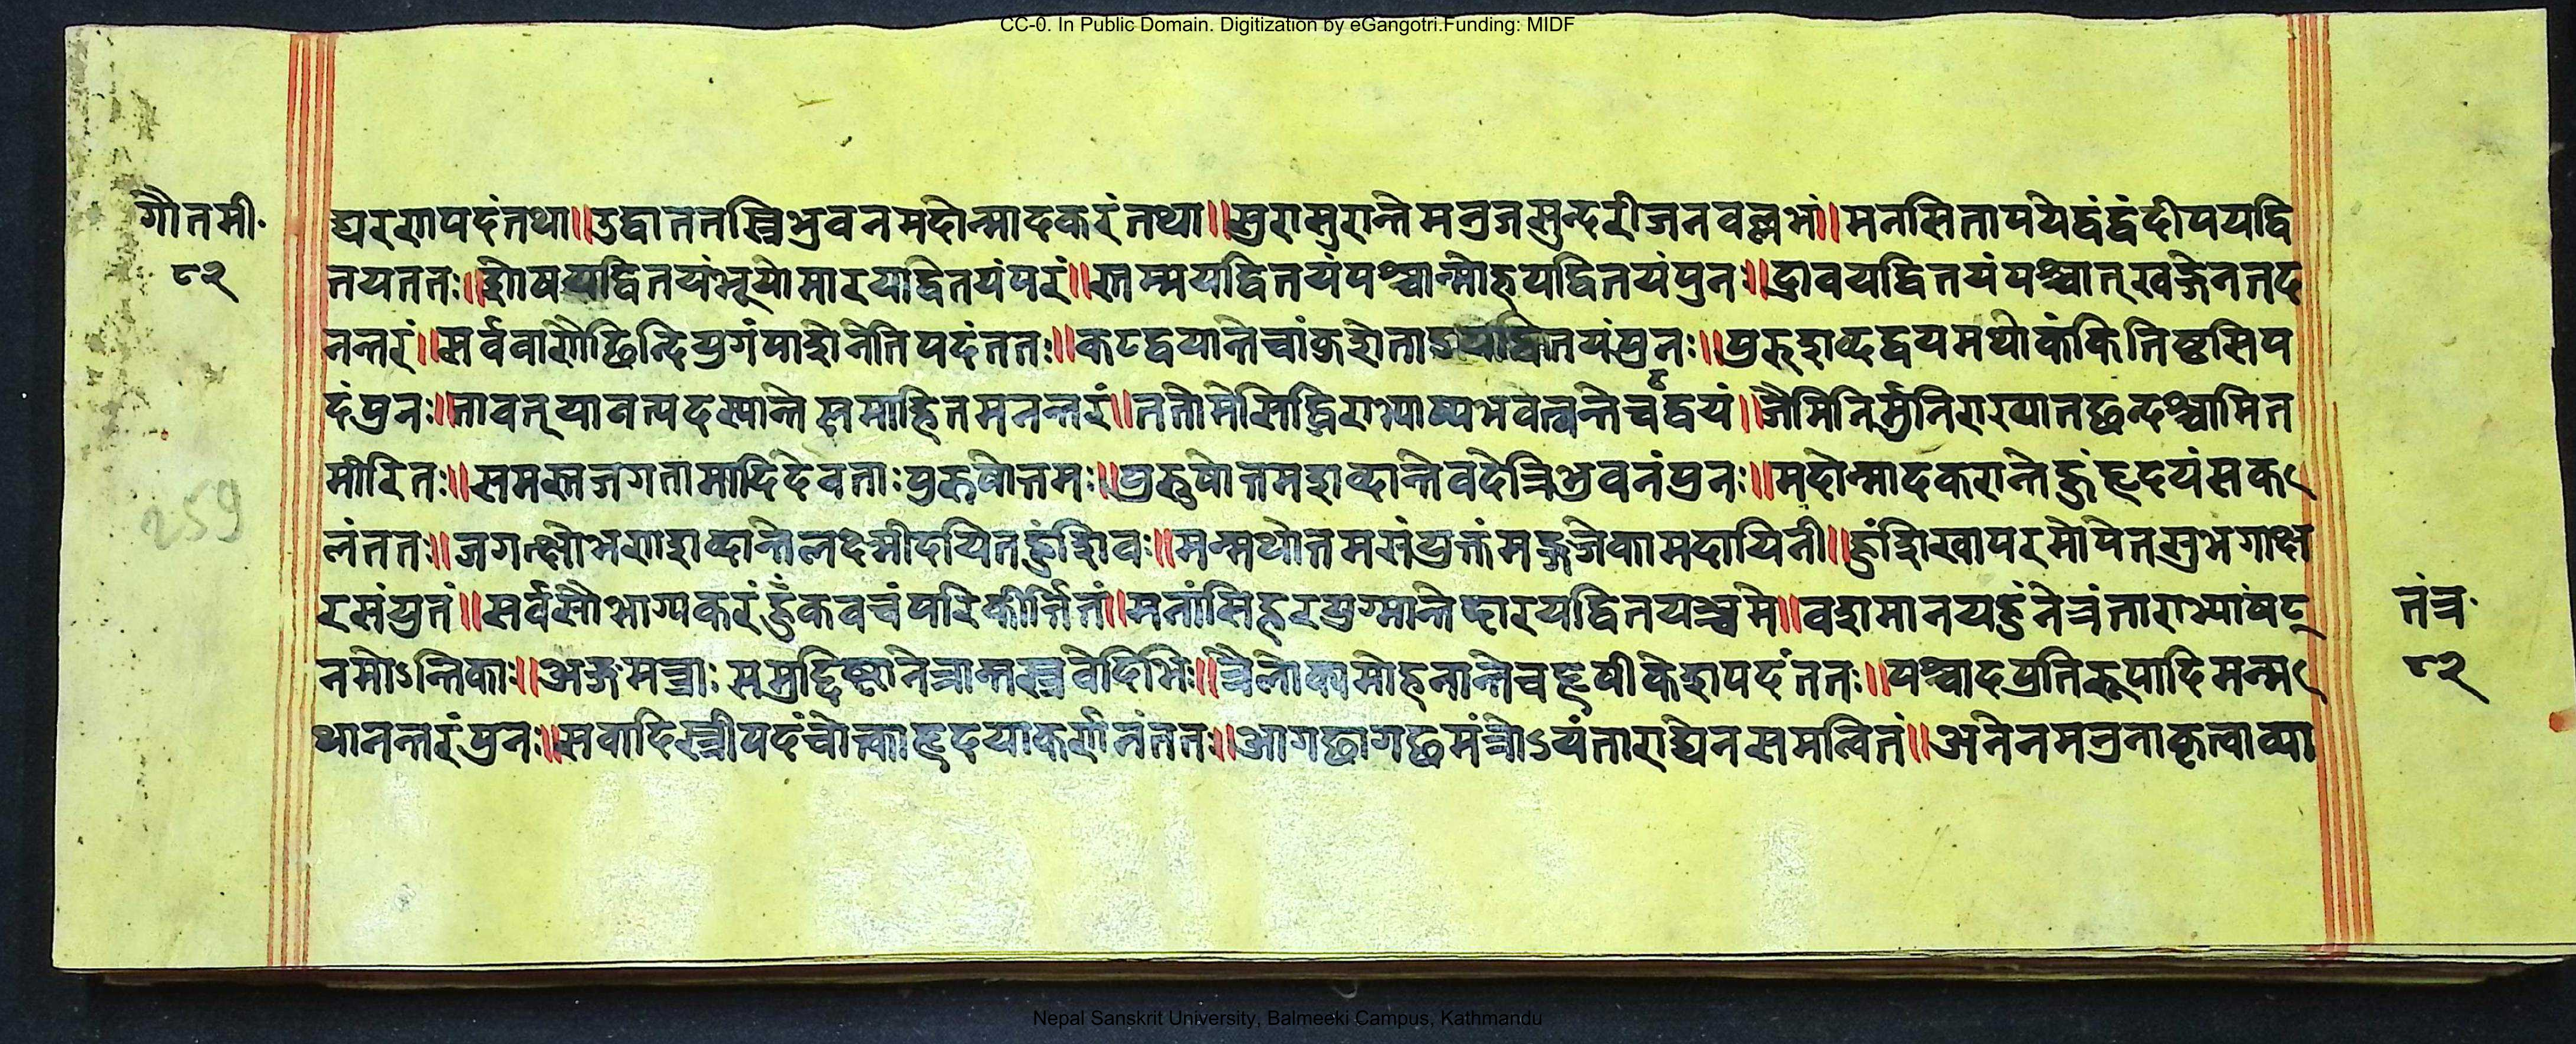 CC-0. In Public Domain. Digitization by eGangotri.Funding: MIDF
गौतमी॰
८२
द्यरणपदंतथा॥उद्वाततस्त्रिभुवनमदोन्मादकरंतथा॥सुरासुरान्तेमनुजसुन्दरीजनवल्लभां॥मनसितापयेद्वंद्वंदीपयद्वि
तयततः॥शोषयद्वितयंभूयोमारयद्वितयंपरं॥स्तम्भयद्वितयंपश्चान्मोहयद्वितयंपुनः॥द्रावयद्वितयंपश्चात्खङ्गेनतद
नन्तरं॥सर्वबाणैछिन्दियुगंपाशेनेतिपदंततः॥कटद्वयान्तेचांकुशेताड द्वितयंपुनः॥पुरुशब्दद्वयमथोकंकितिष्टसिप
दंपुनः॥तावत्यावत्पदस्यान्तेसमाहितमनन्तरं॥ततोमेसिद्धिराभाष्यभवेत्वन्तेचद्वयं॥जैमिनिर्मुनिराख्यातछन्दश्चामित
मीरितः॥समस्तजगतामादिदेवताःपुरुषोत्तमः॥पुरुषोत्तमशब्दान्तेवदेत्रिभुवनंपुनः॥मदोन्मादकरान्तेहुंहृदयंसक
लंततः॥जगत्क्षोभणशब्दान्तेलक्ष्मीदयितहुंशिवः॥मन्मथोत्तमसंप्रुक्तंमङ्गजेकामदायिनी॥हुंशिखापरमोपेतसुभगाक्ष
रसंयुतं॥सर्वसौभाग्यकरंहुंकवचंपरिकीर्त्तितं॥मनांसिहरयुग्मान्तेदारयद्वितयञ्चमे॥वशमानयहुंनेत्रंताराभ्यांषट्
नमोऽन्तिकाः॥अङ्गमन्त्राःसमुद्दिष्टानेत्रान्तस्त्रवेदिभिः॥त्रैलोक्यमोहनान्तेचहृषीकेशपदंततः॥पश्चादप्रतिरूपादिमन्म
थानन्तरंपुनः॥सवादिस्त्रीपदंचोक्त्वाहृदयाकर्णनंततः॥आगछागछमंत्रोऽयंताराद्येनसमन्वितं॥अनेनमनुनाकृत्वाव्या
तंत्र॰
८२
259
Nepal Sanskrit University, Balmeeki Campus, Kathmandu